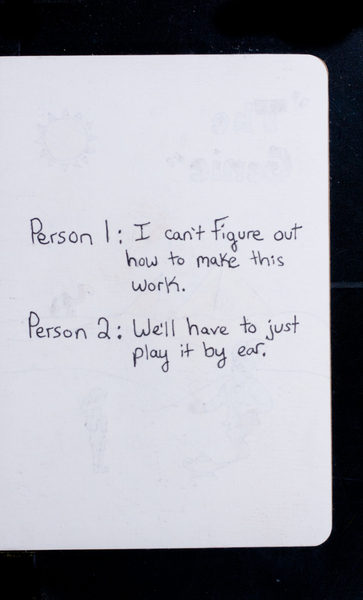 Person 1: I can't figure out
how to make this
work.
Person 2: We'll have to just
play it by ear.